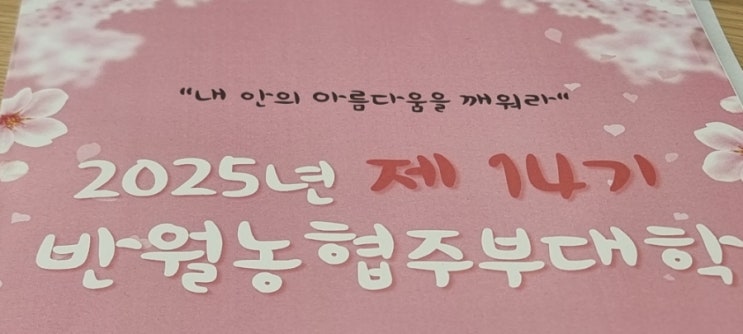 "내 안의 아름다움을 깨워라"
2025년 제 14기
반월농협주부대학